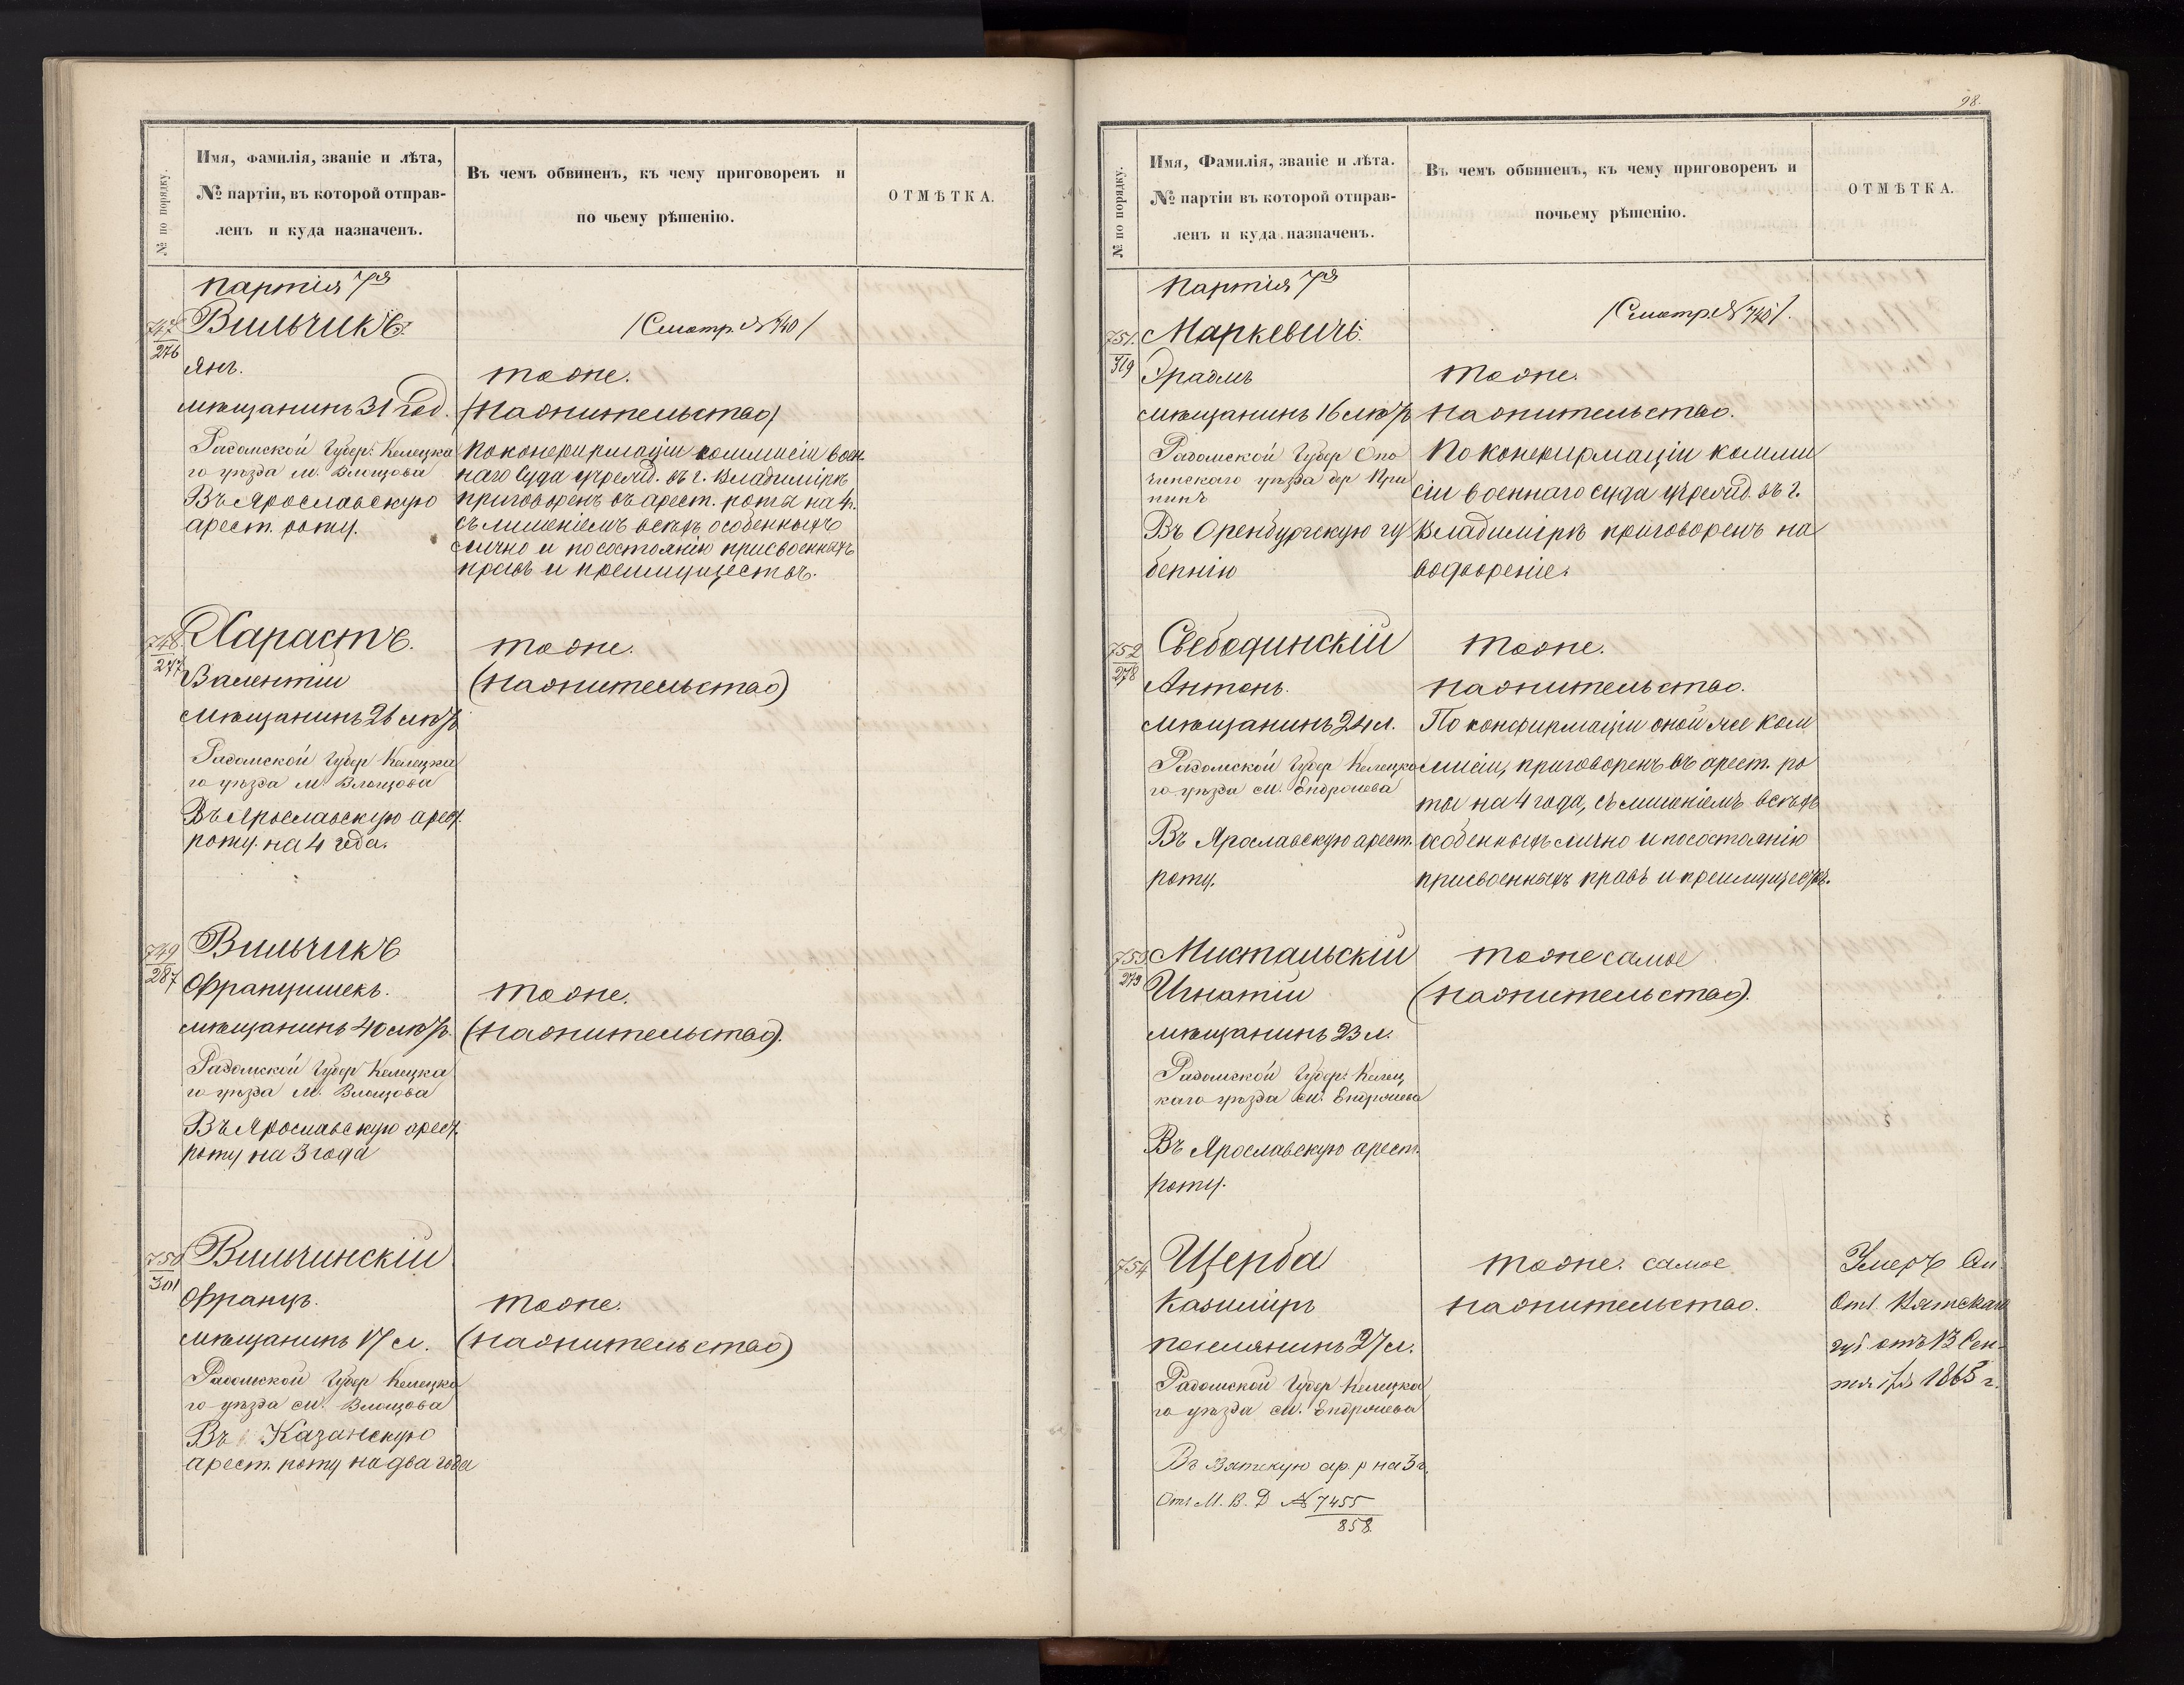 № по порядку.
Имя, Фамилія, званіе и лѣта,
№ партіи, въ которой отправ-
ленъ и куда назначенъ.
Въ чемъ обвиненъ, къ чему приговоренъ и
по чьему рѣшенію.
ОТМѢТКА.
Партія 7я
747.
276
Вильчикъ.
Янъ.
мѣщанинъ 31 год.
Радомской Губер: Келецка
го уѣзда м. Влощова
Въ Ярославскую
арест. роту.
/Смотр. № 740/
тоже.
(на жительство)
По конфирмаціи коммисіи воен
наго Суда учрежд. въ г. Владимірѣ
приговоренъ въ арест. роты на 4 г.
съ лишеніемъ всѣхъ особенныхъ
лично и по состоянію присвоенныхъ
правъ и преимуществъ.
748.
277
Харастъ.
Валентій
мѣщанинъ 26 лѣтъ
Радомской Губер Келецка
го уѣзда м. Влощова
Въ Ярославскую арест.
роту. на 4 года.
тоже.
(на жительство)
749
287
Вильчикъ
Францишекъ.
мѣщанинъ 40 лѣтъ.
Радомской Губер Келецка
го уѣзда м. Влощова
Въ Ярославскую арест.
роту на 3 года
тоже.
(на жительство).
750
301
Вильчинскій
Францъ.
мѣщанинъ 17 л.
Радомской Губер Келецка
го уѣзда м. Влощова
Въ Казанскую
арест. роту на два года
тоже.
(на жительство)
98.
№ по порядку.
Имя, Фамилія, званіе и лѣта.
№ партіи въ которой отправ-
ленъ и куда назначенъ.
Въ чемъ обвиненъ, къ чему приговоренъ и
почьему рѣшенію.
ОТМѢТКА.
Партія 7я
751.
319
Маркевичъ.
мѣщанинъ 16 лѣтъ
Радомской Губер Опо
чинскаго уѣзда дер
Въ Оренбургскую гу
бернію
/Смотр. № 740/.
тоже.
на жительство.
По конфирмаціи комми
сіи военнаго суда учрежд. въ г.
Владимірѣ приговоренъ на
водвореніе.
752
278
Свебодинскій
Антонъ.
мѣщанинъ 24 л.
Радомской Губер Келецка
го уѣзда м. Ендржиева
Въ Ярославскую арест.
роту.
тоже.
на жительство.
По конфирмаціи оной же ком
мисіи, приговоренъ въ арест. ро
ты на 4 года, съ лишеніемъ всѣхъ
особенныхъ лично и по состоянію
присвоенныхъ правъ и преимуществъ.
753
279
Мистальскій
Игнатій
мѣщанинъ 23 л.
Радомской Губер: Келец
каго уѣзда м. Ендржиева
Въ Ярославскую арест.
роту.
тоже самое
(на жительство).
754
Щерба
Казиміръ
поселянинъ 27 л.
Радомской Губер Келецка
го уѣзда м. Ендржиева
Въ Вятскую ар. р на 3 г.
Отн. М. В. Д № 7455
858.
тоже. самое
на жительство.
Умеръ
Отн. Вятскаго
губ. отъ 13 Сен-
тября 1865 г.